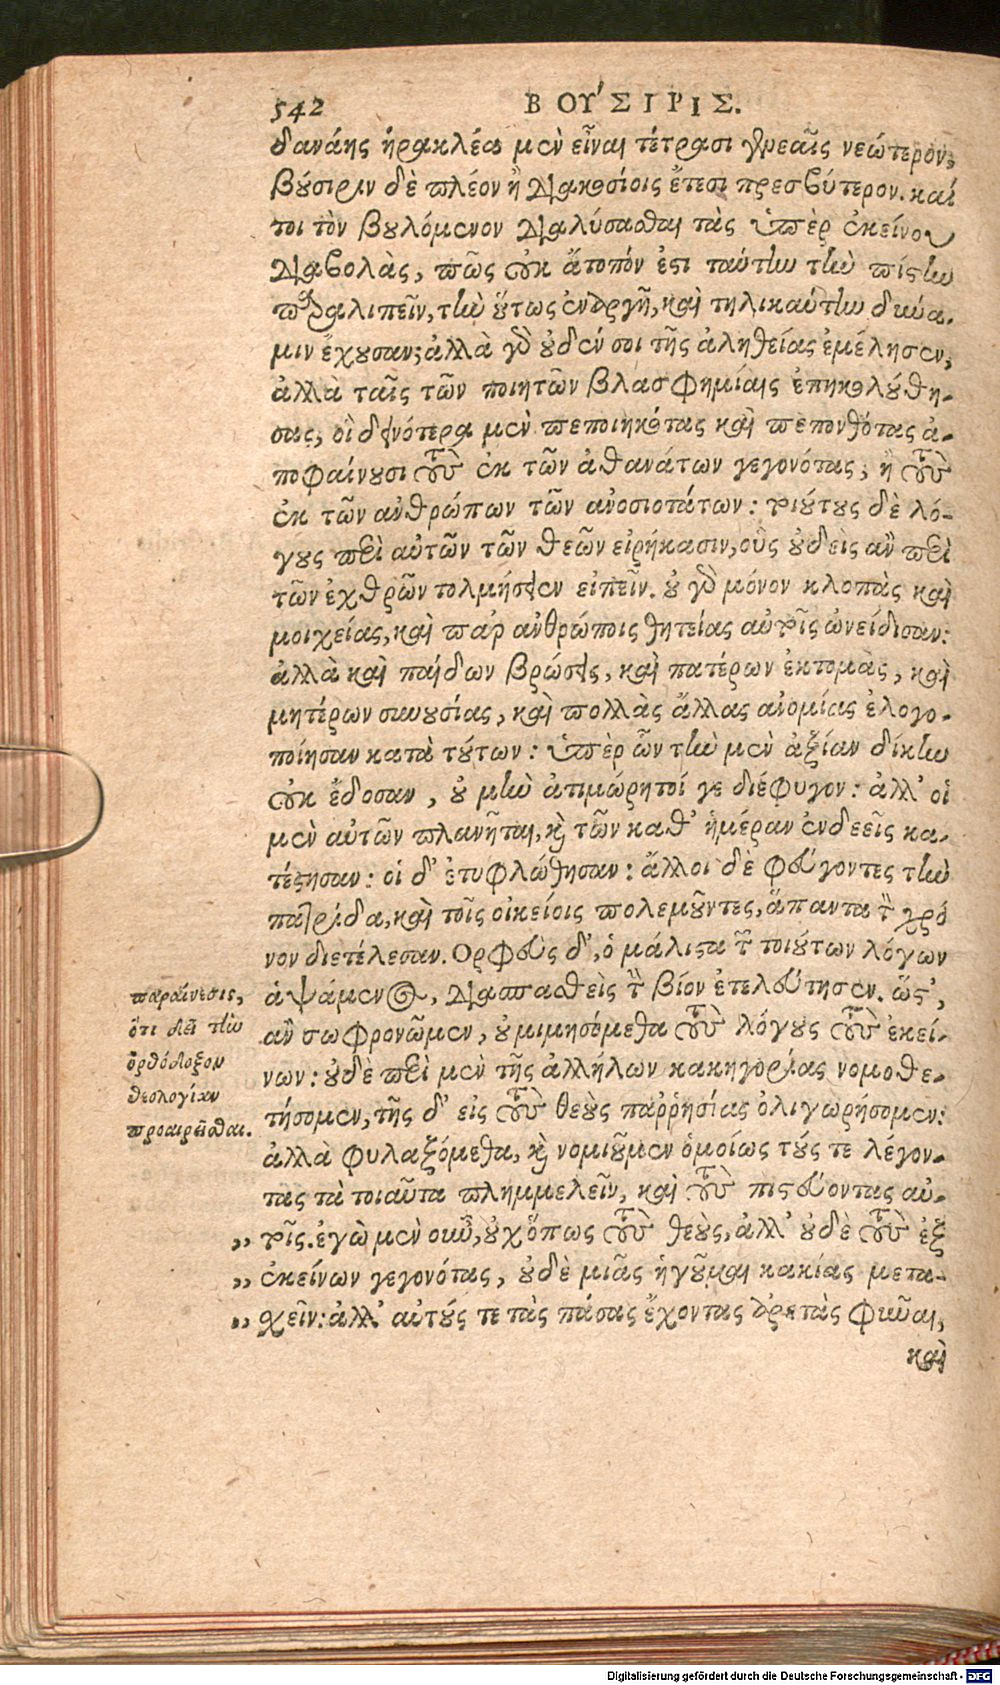 542 ΒΟΥ´ΣΙΡΙΣ.
δανάης ἡρακλέα μὲν εἶναι τέτρασι γενεαῖς νεώτερον,
βούσιριν δὲ πλέον ἢ διακοσίοις ἔτεσι πρεσβύτερον. καί
τοι τὸν βουλόμενον διαλύσασθαι τὰς ὑπὲρ ἐκείνου
διαβολὰς, πῶς οὐκ ἄτοπόν ἐστι ταύτην τὴν πίστιν
παραλιπεῖν, τὴν οὕτως ἐναργῆ, καὶ τηλικαύτην δύνα-
μιν ἔχουσαν; ἀλλὰ γὰρ οὐδέν σοι τῆς ἀληθείας ἐμέλησεν,
ἀλλὰ ταῖς τῶν ποιητῶν βλασφημίαις ἐπηκολούθη-
σας, οἳ δεινότερα μὲν πεποιηκότας καὶ πεπονθότας ἀ-
ποφαίνουσι τοὺς ἐκ τῶν ἀθανάτων γεγονότας, ἢ τοὺς
ἐκ τῶν ἀνθρώπων τῶν ἀνοσιοτάτων: τοιούτους δὲ λό-
γους περὶ αὐτῶν τῶν θεῶν εἰρήκασιν, οὓς οὐδεὶς ἂν περὶ
τῶν ἐχθρῶν τολμήσειεν εἰπεῖν. οὐ γὰρ μόνον κλοπὰς καὶ
μοιχείας, καὶ παρ ἀνθρώποις θητείας αὐτοῖς ὠνείδισαν:
ἀλλὰ καὶ παίδων βρώσεις, καὶ πατέρων ἐκτομὰς, καὶ
μητέρων συνουσίας, καὶ πολλὰς ἄλλας ἀνομίας ἐλογο-
ποίησαν κατὰ τούτων: ὑπὲρ ὧν τὴν μὲν ἀξίαν δίκην
οὐκ ἔδοσαν, οὐ μὴν ἀτιμώρητοί γε διέφυγον: ἀλλ' οἱ
μὲν αὐτῶν πλανῆται, καὶ τῶν καθ' ἡμέραν ἐνδεεῖς κα-
τέστησαν: οἱ δ' ἐτυφλώθησαν: ἄλλοι δὲ φεύγοντες τὴν
πατρίδα, καὶ τοῖς οἰκείοις πολεμοῦντες, ἅπαντα τὸν χρό
νον διετέλεσαν. Ορφεὺς δ', ὁ μάλιστα τῶν τοιούτων λόγων
ἁψάμενος, διασπασθεὶς τὸν βίον ἐτελεύτησεν. ὥστ',
ἂν σωφρονῶμεν, οὐ μιμησόμεθα τοὺς λόγους τοὺς ἐκεί-
νων: οὐδὲ περὶ μὲν τῆς ἀλλήλων κακηγορίας νομοθε-
τήσομεν, τῆς δ' εἰς τοὺς θεοὺς παῤῥησίας ὀλιγωρήσομεν:
ἀλλὰ φυλαξόμεθα, καὶ νομιοῦμεν ὁμοίως τούς τε λέγον-
τας τὰ τοιαῦτα πλημμελεῖν, καὶ τοὺς πιστεύοντας αὐ-
„ τοῖς. ἐγὼ μὲν οὖν, οὐχ ὅπως τοὺς θεοὺς, ἀλλ' οὐδὲ τοὺς ἐξ
„ ἐκείνων γεγονότας, οὐδὲ μιᾶς ἡγοῦμαι κακίας μετα-
„ σχεῖν: ἀλλ' αὐτούς τε τὰς πάσας ἔχοντας ἀρετὰς φῦναι,
καὶ
παραίνεσις,
ὅτι δεῖ τὴν
ὀρθόδοξον
θεολογίαν
προαιρεῖσθαι.
Digitalisierung gefördert durch die Deutsche Forschungsgemeinschaft - DFG